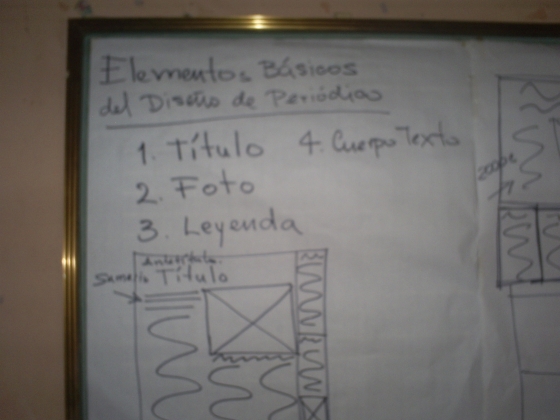 Elementos Básicos
del Diseño de Periódico
1. Título
4. Cuerpo Texto
2. Foto
3. Leyenda
Antetítulo
Sumario
Título